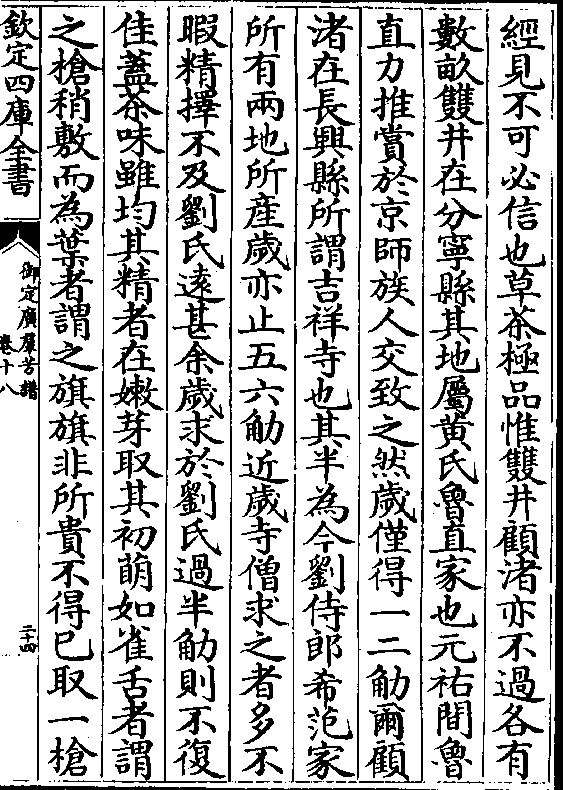 經見不可必信也草茶極品惟雙井顧渚亦不過各有
數畝雙井在分寧縣其地屬黄氏魯直家也元祐間魯
直力推賞於京師族人交致之然歲僅得一二觔爾顧
渚在長興縣所謂吉祥寺也其半為今劉侍郎希范家
所有兩地所産歲亦止五六觔近歲寺僧求之者多不
暇精擇不及劉氏逺甚余歲求於劉氏過半觔則不復
佳葢茶味雖均其精者在嫩芽取其初萌如雀舌者謂
之槍稍敷而為葉者謂之旗旗非所貴不得已取一槍
欽定四庫全書
御定廣羣芳譜
卷十八
二十四